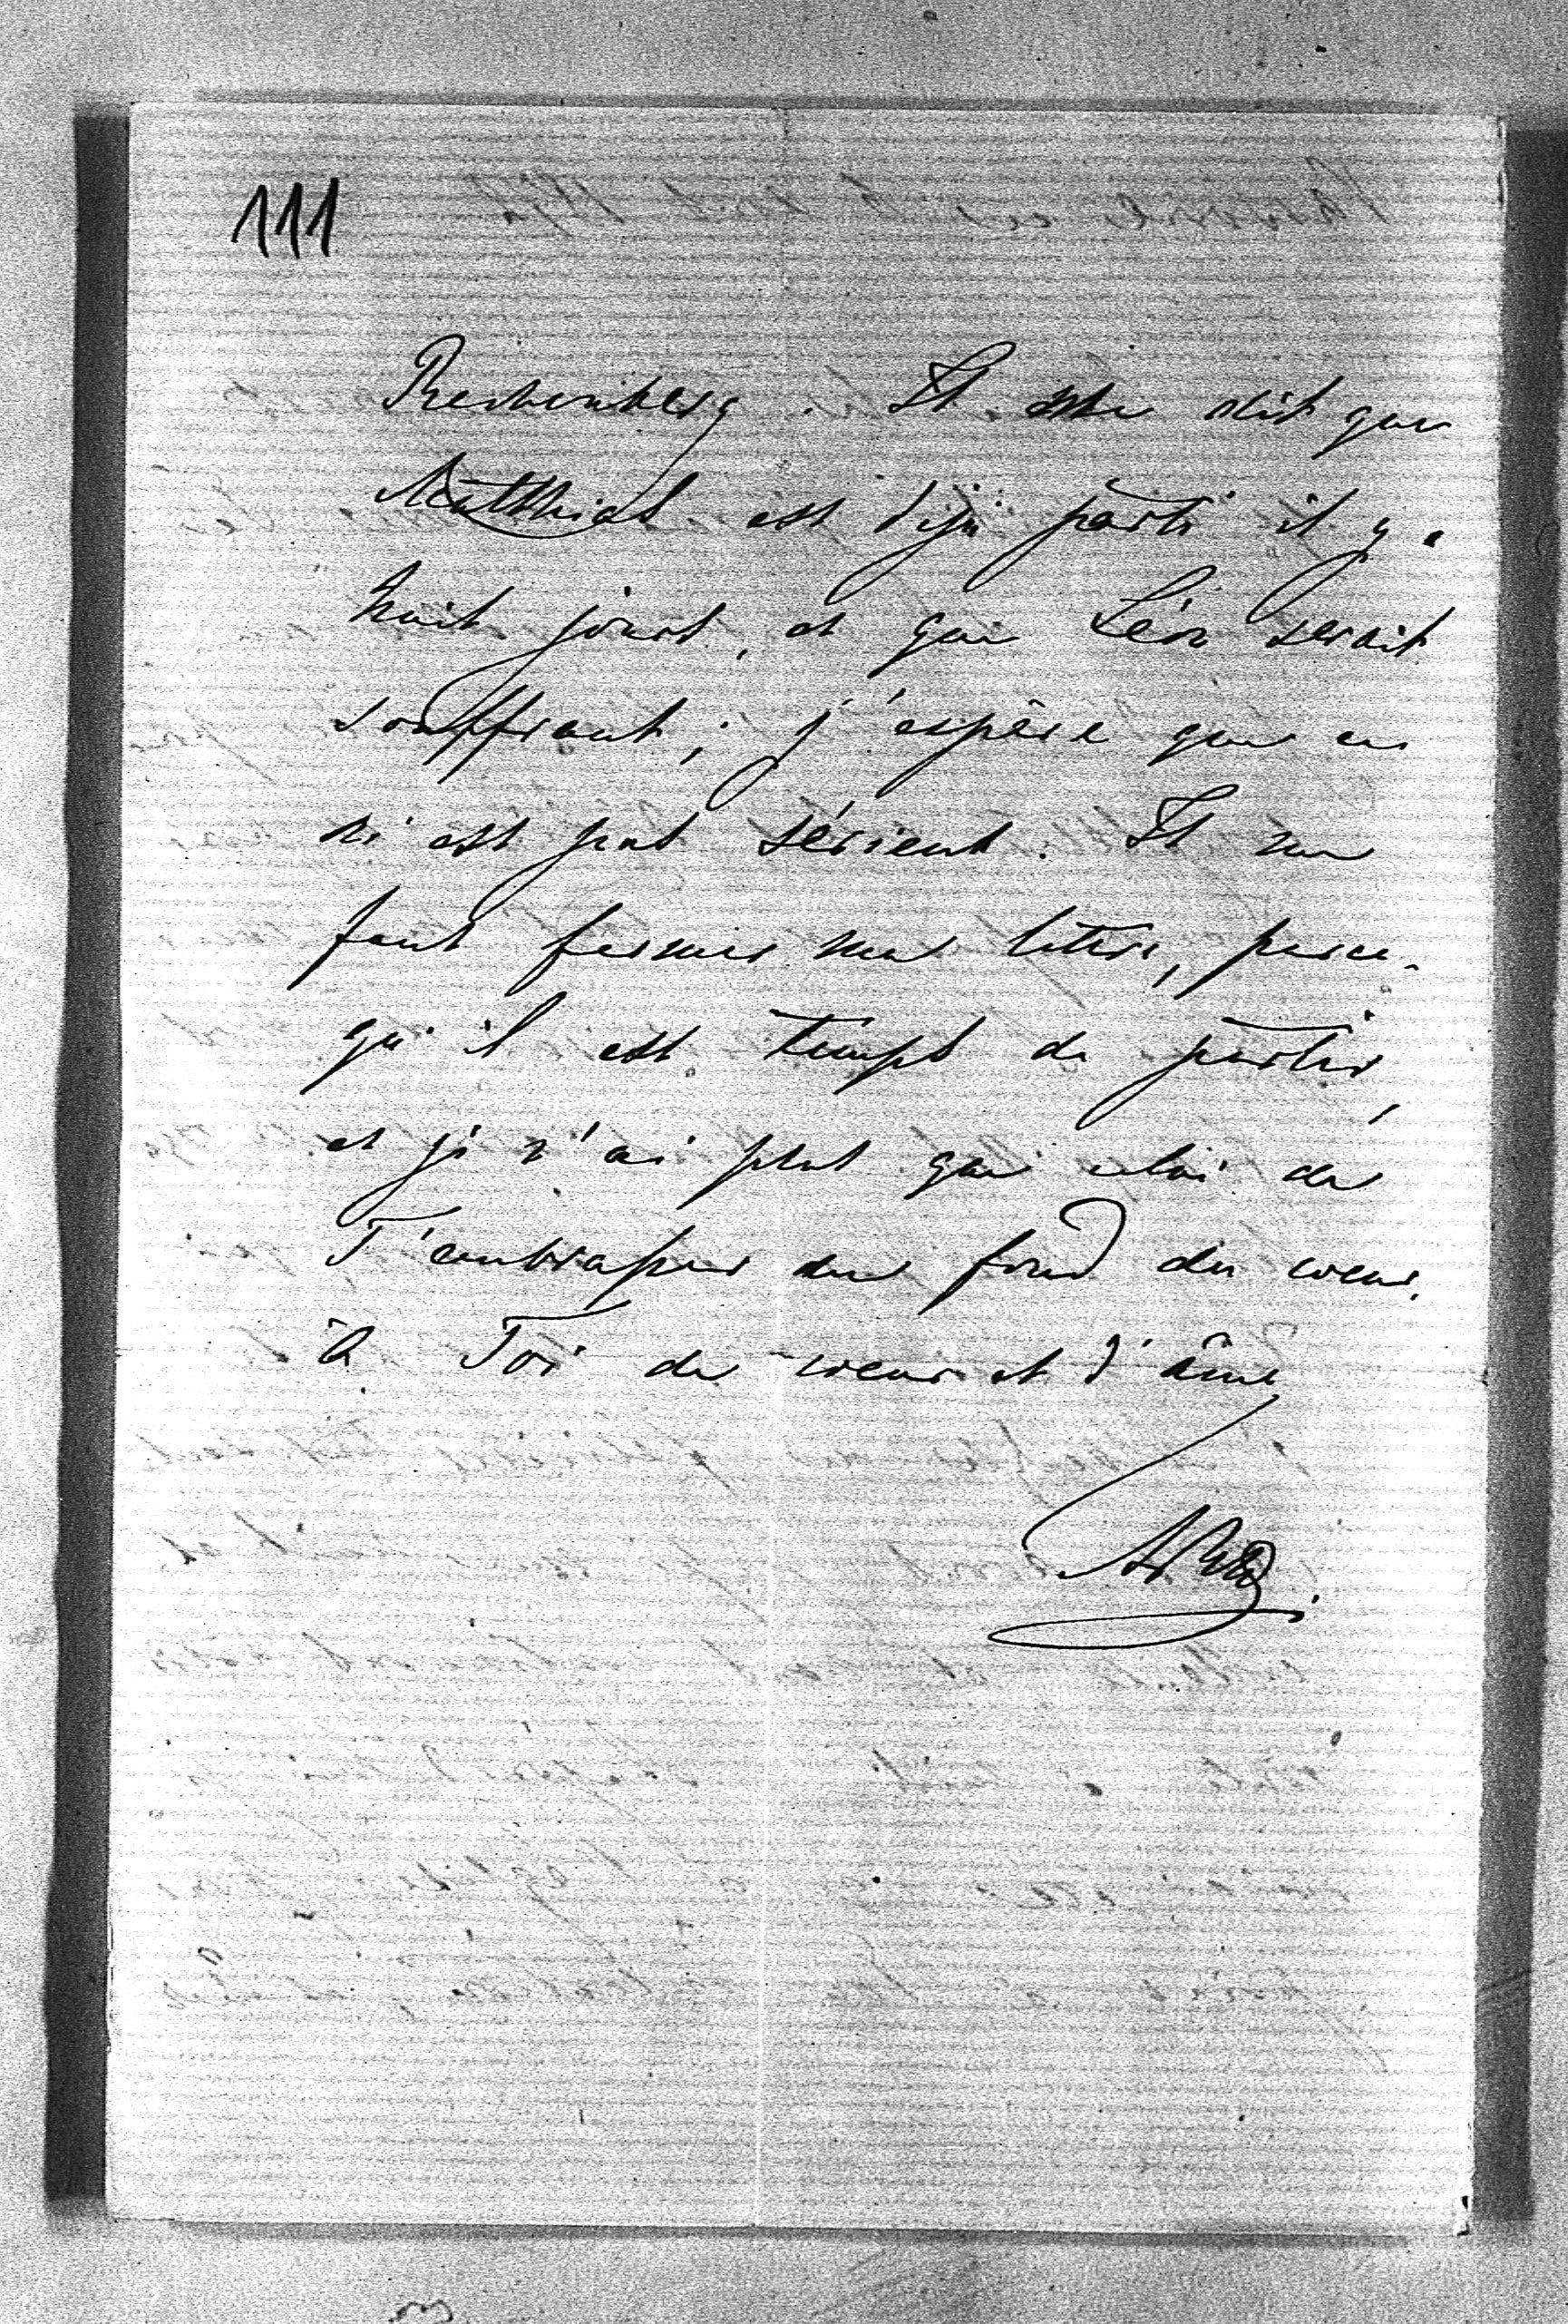 111
Rechenberg. Il me dit que
Matthias est déjà parti il y a
huit jours, et que Léon serait
souffrant; j'espère que ce
n'est pas sérieux. Il me
faut fermer ma lettre, parce-
qu'il est temps de partir,
et je n'ai plus que celui de
T'embrasser du fond du coeur.
à Toi de coeur et d'âme